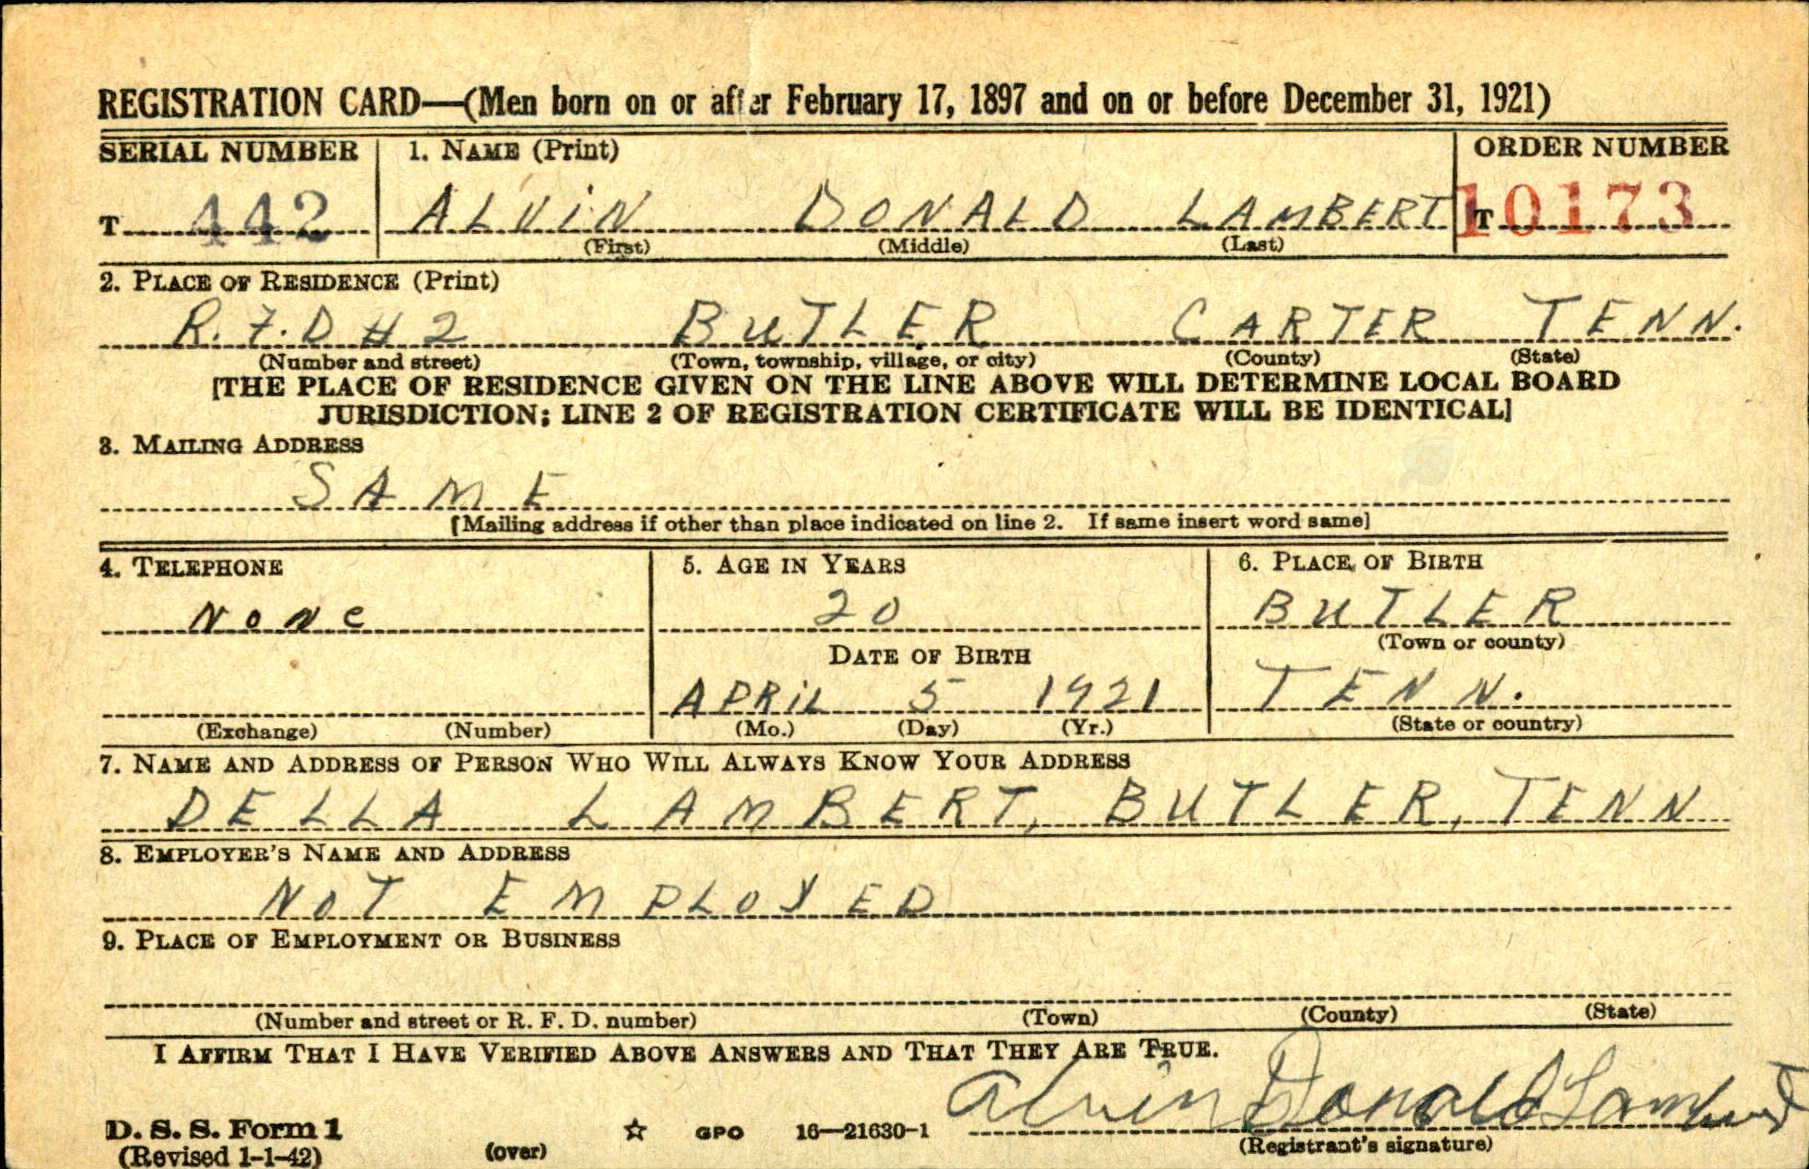 REGISTRATION CARD—(Men born on or after February 17, 1897 and on or before December 31, 1921)
SERIAL NUMBER 1. NAME (Print) ORDER NUMBER
T 442 ALVIN DONALD LAMBERT T 10173
(First) (Middle) (Last)
2. PLACE OF RESIDENCE (Print)
R.F.D # 2 BUTLER CARTER TENN.
(Number and street) (Town, township, village, or city) (County) (State)
[THE PLACE OF RESIDENCE GIVEN ON THE LINE ABOVE WILL DETERMINE LOCAL BOARD
JURISDICTION; LINE 2 OF REGISTRATION CERTIFICATE WILL BE IDENTICAL]
3. MAILING ADDRESS
SAME
[Mailing address if other than place indicated on line 2. If same insert word same]
4. TELEPHONE 5. AGE IN YEARS 6. PLACE OF BIRTH
NONe 20 BUTLER
(Town or county)
DATE OF BIRTH
APRiL 5 1921 TENN.
(Exchange) (Number) (Mo.) (Day) (Yr.) (State or country)
7. NAME AND ADDRESS OF PERSON WHO WILL ALWAYS KNOW YOUR ADDRESS
DELLA LAMBERT, BUTLER, TENN
8. EMPLOYER'S NAME AND ADDRESS
NOT EMPLOYED
9. PLACE OF EMPLOYMENT OR BUSINESS
(Number and street or R. F. D. number) (Town) (County) (State)
I AFFIRM THAT I HAVE VERIFIED ABOVE ANSWERS AND THAT THEY ARE TRUE.
Alvin Donald Lambert
D. S. S. Form 1 ☆ GPO 16—21630-1
(Revised 1-1-42) (over) (Registrant's signature)